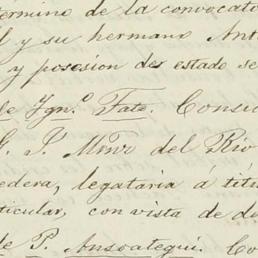 término de la convocato
l y su hermano Ant
y posesion des estado se
de Ygn.º Fate. Consid
G. J. Mtnr del Rio
edera, legataria á títu
ticular, con vista de do
de P. Ansoategui. Co